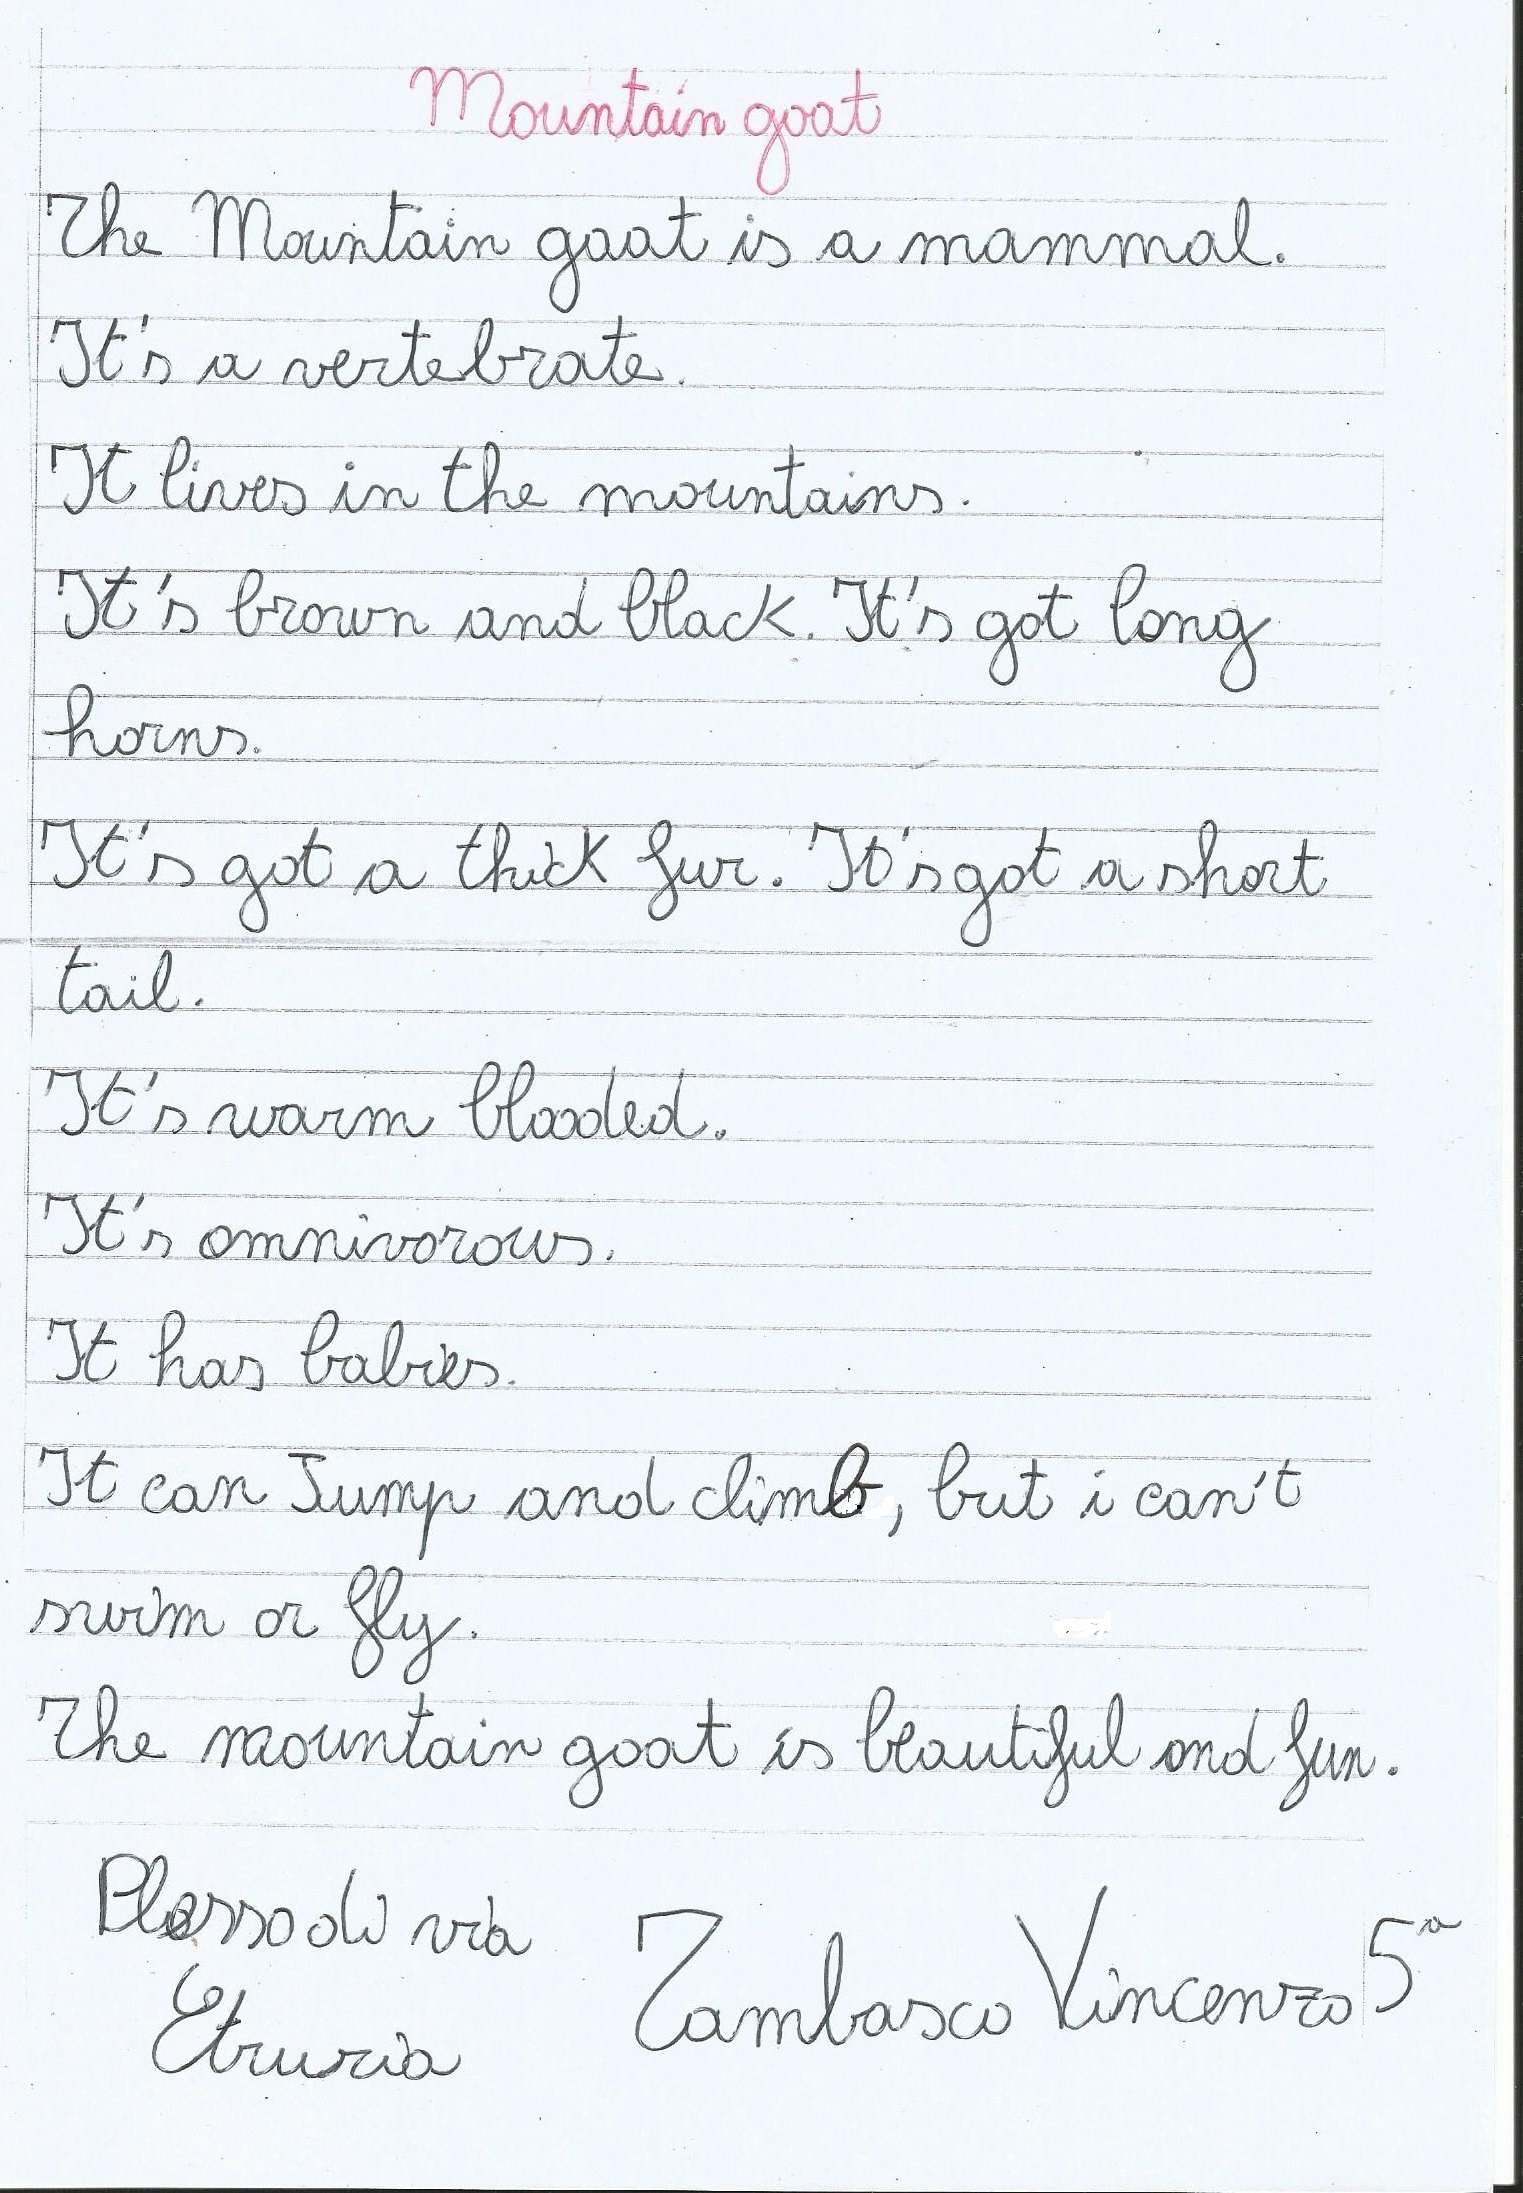 Mountain goat
The Mountain goat is a mammal.
It's a vertebrate.
It lives in the mountains.
It's brown and black. It's got long
horns.
It's got a thick fur. It's got a short
tail.
It's warm blooded.
It's omnivorous.
It has babies.
It can Jump and climb, but i can't
swim or fly.
The mountain goat is beautiful and fun.
Plesso di via
Etruria
Tambasco Vincenzo 5ª